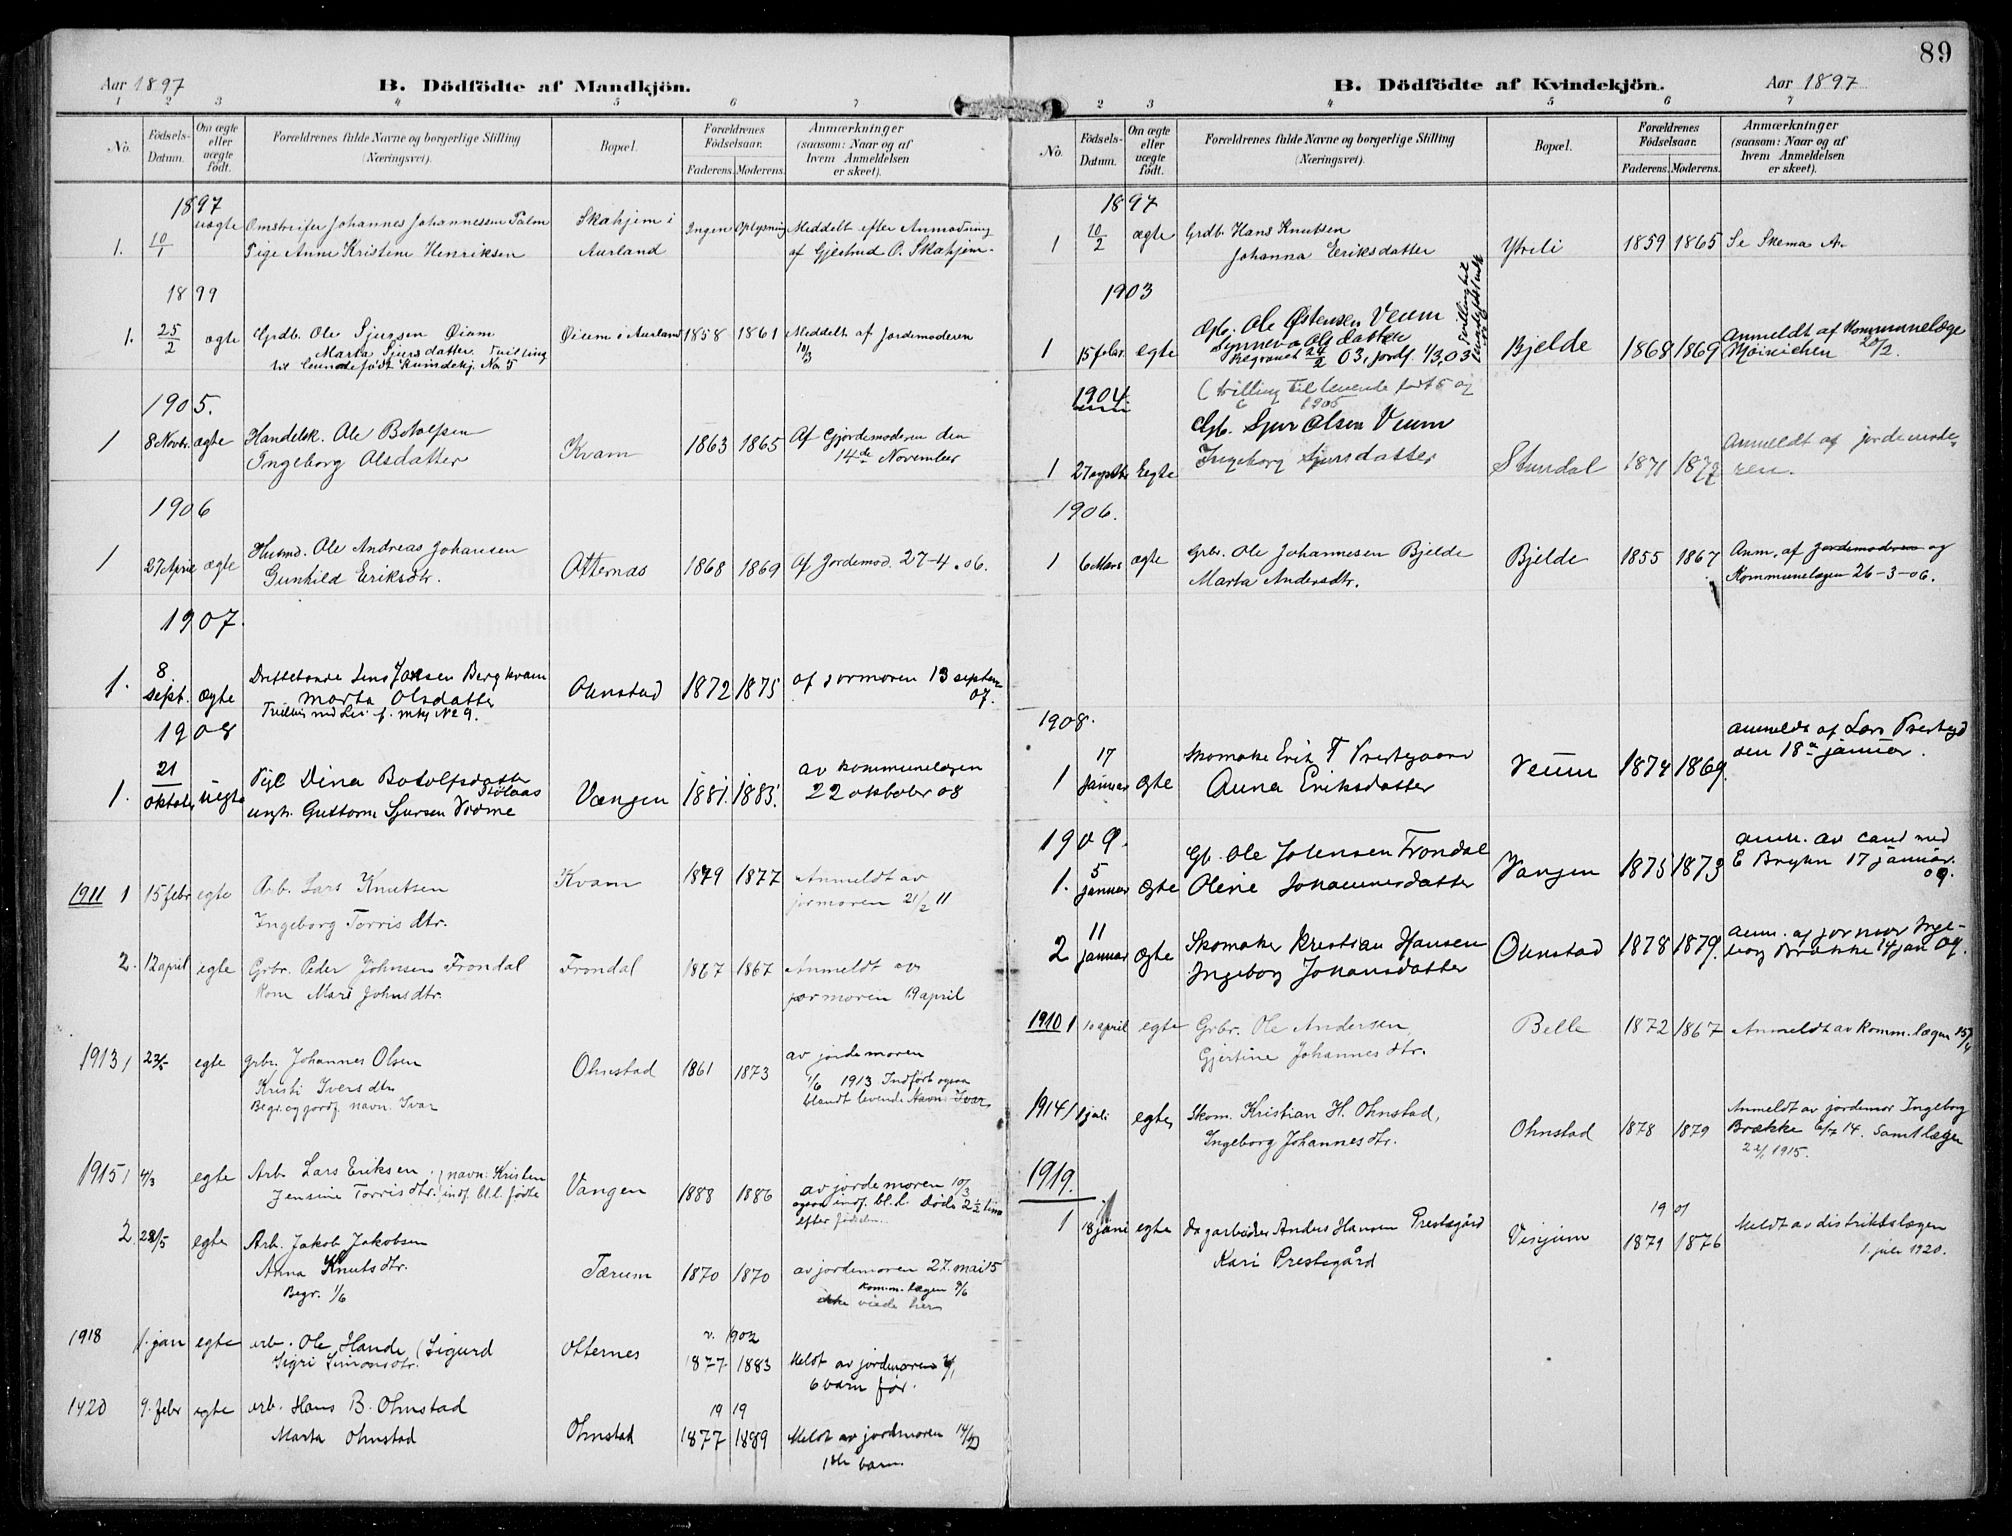 Aar 1897
B. Dödfödte af Mandkjön.
1 2 3 4 5 6 7
No.
Födsels-Datum.
Om ægte eller uægte födt.
Forældrenes fulde Navne og borgerlige Stilling (Næringsvei).
Bopæl.
Forældrenes Födselsaar.
Faderens. Moderens.
Anmærkninger (saasom: Naar og af hvem Anmeldelsen er skeet).
1897
1. 10/1 uægte Omstreifer Johannes Johannessen Palm Skahjem i Ingen Oplysning Meddelt efter Anmodning
Pige Anne Kristine Henriksen Aurland af Gjertrud O. Skahjem.
1899
1. 25/2 ægte Grdb. Ole Sjursen Øium Øium i Aurland 1858 1861 Meddelt af Jordemoderen
Marta Sjursdatter. Tvilling 10/3
til levende født Kvindekj. No 5
1905.
1 8 Novbr. ægte Handelsk. Ole Botolfsen Kvam 1863 1865 Af Gjordemoderen den
Ingeborg Olsdatter 14de November
1906
1 27 April ægte Husmd. Ole Andreas Johansen Otternæs 1868 1869 Af Jordemod. 27-4.06.
Gunhild Eriksdtr.
1907.
1. 8 sept. ægte Driftebonde Jens Jansen Bergkvam Ohnstad 1872 1875 af jormoren 13 septem
Marta Olsdatter 07.
Tvilling med Lev. f. mkj No 9.
1908
1. 21 oktober uegte Pige Dina Botolfsdatter Vangen 1881. 1883. av kommunelægen
ungk. Guttorm Sjursen 22 oktober 08
1911 1 15 febr egte Arb. Lars Knutsen Kvam 1879 1877 Anmeldt av
Ingeborg Torrisdtr. jormoren 21/2 11
2. 12 april egte Grbr. Peder Johnsen Frondal Frondal 1867 1867 Anmeldt av
Kone Mari Johnsdtr. jormoren 19 april
1913 1 23/5 egte grbr. Johannes Olsen Ohnstad 1861 1873 av jordemoren
Kristi Iversdtr 1/6 1913 Indført ogsaa
Begr. og jordf. navn: Ivar blandt levende Navn: Ivar
1915 1 4/3 egte Arb. Lars Eriksen navn: Kristen Vangen 1888 1886 av jordemoren 10/3
Jensine Torrisdtr. indf. bl. l. fødte ogsaa indf. bl. l. Døde 2 1/2 time
efter fødselen.
2 23/5 egte Arb. Jakob Jakobsen Tærum 1870 1870 av jordemoren 27. mai 15
Anna Knutsdtr. komm.lægen 9/6
Begr. 1/6 ikke viede her
1918 1. jan egte arb. Ole Hande (Sigurd Otternes v. 1902
Sigri Simonsdtr. 1877 1883 Meldt av jordmoren
6 barn før.
1920 9. febr egte arb. Hans B. Ohnstad Ohnstad 19 19
Marta Ohnstad 1877 1889 Meldt av jordmoren 14/
1ste barn.
89
B. Dödfödte af Kvindekjön.
Aar 1897
2 3 4 5 6 7
No.
Födsels-Datum.
Om ægte eller uægte födt.
Forældrenes fulde Navne og borgerlige Stilling (Næringsvei).
Bopæl.
Forældrenes Födselsaar.
Faderens. Moderens.
Anmærkninger (saasom: Naar og af hvem Anmeldelsen er skeet).
1897
1 10/2 ægte Grdb. Hans Knutsen Ytreli 1859 1865 Se Skema A.
Johanna Eriksdatter
1903
1 15 febr. egte Gb. Ole Østensen Veum Bjelde 1868 1869 Anmeldt af Kommunelæge
Synneva Olsdatter 20/2.
Begravet 24/2 03, jordf. 1/3,03
1904
(tvilling til levende født 5 og
6 1905
Gb. Sjur Olsen Veum
1 27 egte Ingeborg Sjursdatter Stundal 1871 1872 Anmeldt af jordemode-
ren.
1906.
1 6 Mars ægte Grbr. Ole Johannesen Bjelde Bjelde 1855 1867 Anm. af Jordemoderen og
Marta Andersdtr. Kommunelægen 26-3-06.
1908.
1 17 Januar egte Skomaker Erik T Prestegaard Veum 1874 1869. anmeldt af Lars Prestegd
Anna Eriksdatter den 18de januar.
1909.
1. 5 januar egte Gb. Ole Jolensen Frondal Vangen 1875 1873 anm. av cand med
Oline Johannesdatter E Bryhn 17 januar.
09.
2 11 januar egte Skomaker Kristian Hansen Ohnstad 1878 1879. anm. af jormor Inge-
Ingeborg Johansdatter borg Brække 14 jan 09.
1910 1 10 april egte Grbr. Ole Andersen, Belle 1872 1867 Anmeldt av komm.lægen 15/4
Gjertine Johannesdtr.
1914 1 1 juli egte Skom. Kristian H. Ohnstad, Ohnstad 1878 1879 Anmeldt av jordemor Ingeborg
Ingeborg Johannesdtr. Brække 6/7 14. Samt lægen
22/1 1915.
1919.
1 18 juni egte dagarbeider Anders Hansen Prestegård Vinjum 1879 1876 Meldt av distriktslægen
Kari Prestegård 19 01 1. juli 1920.